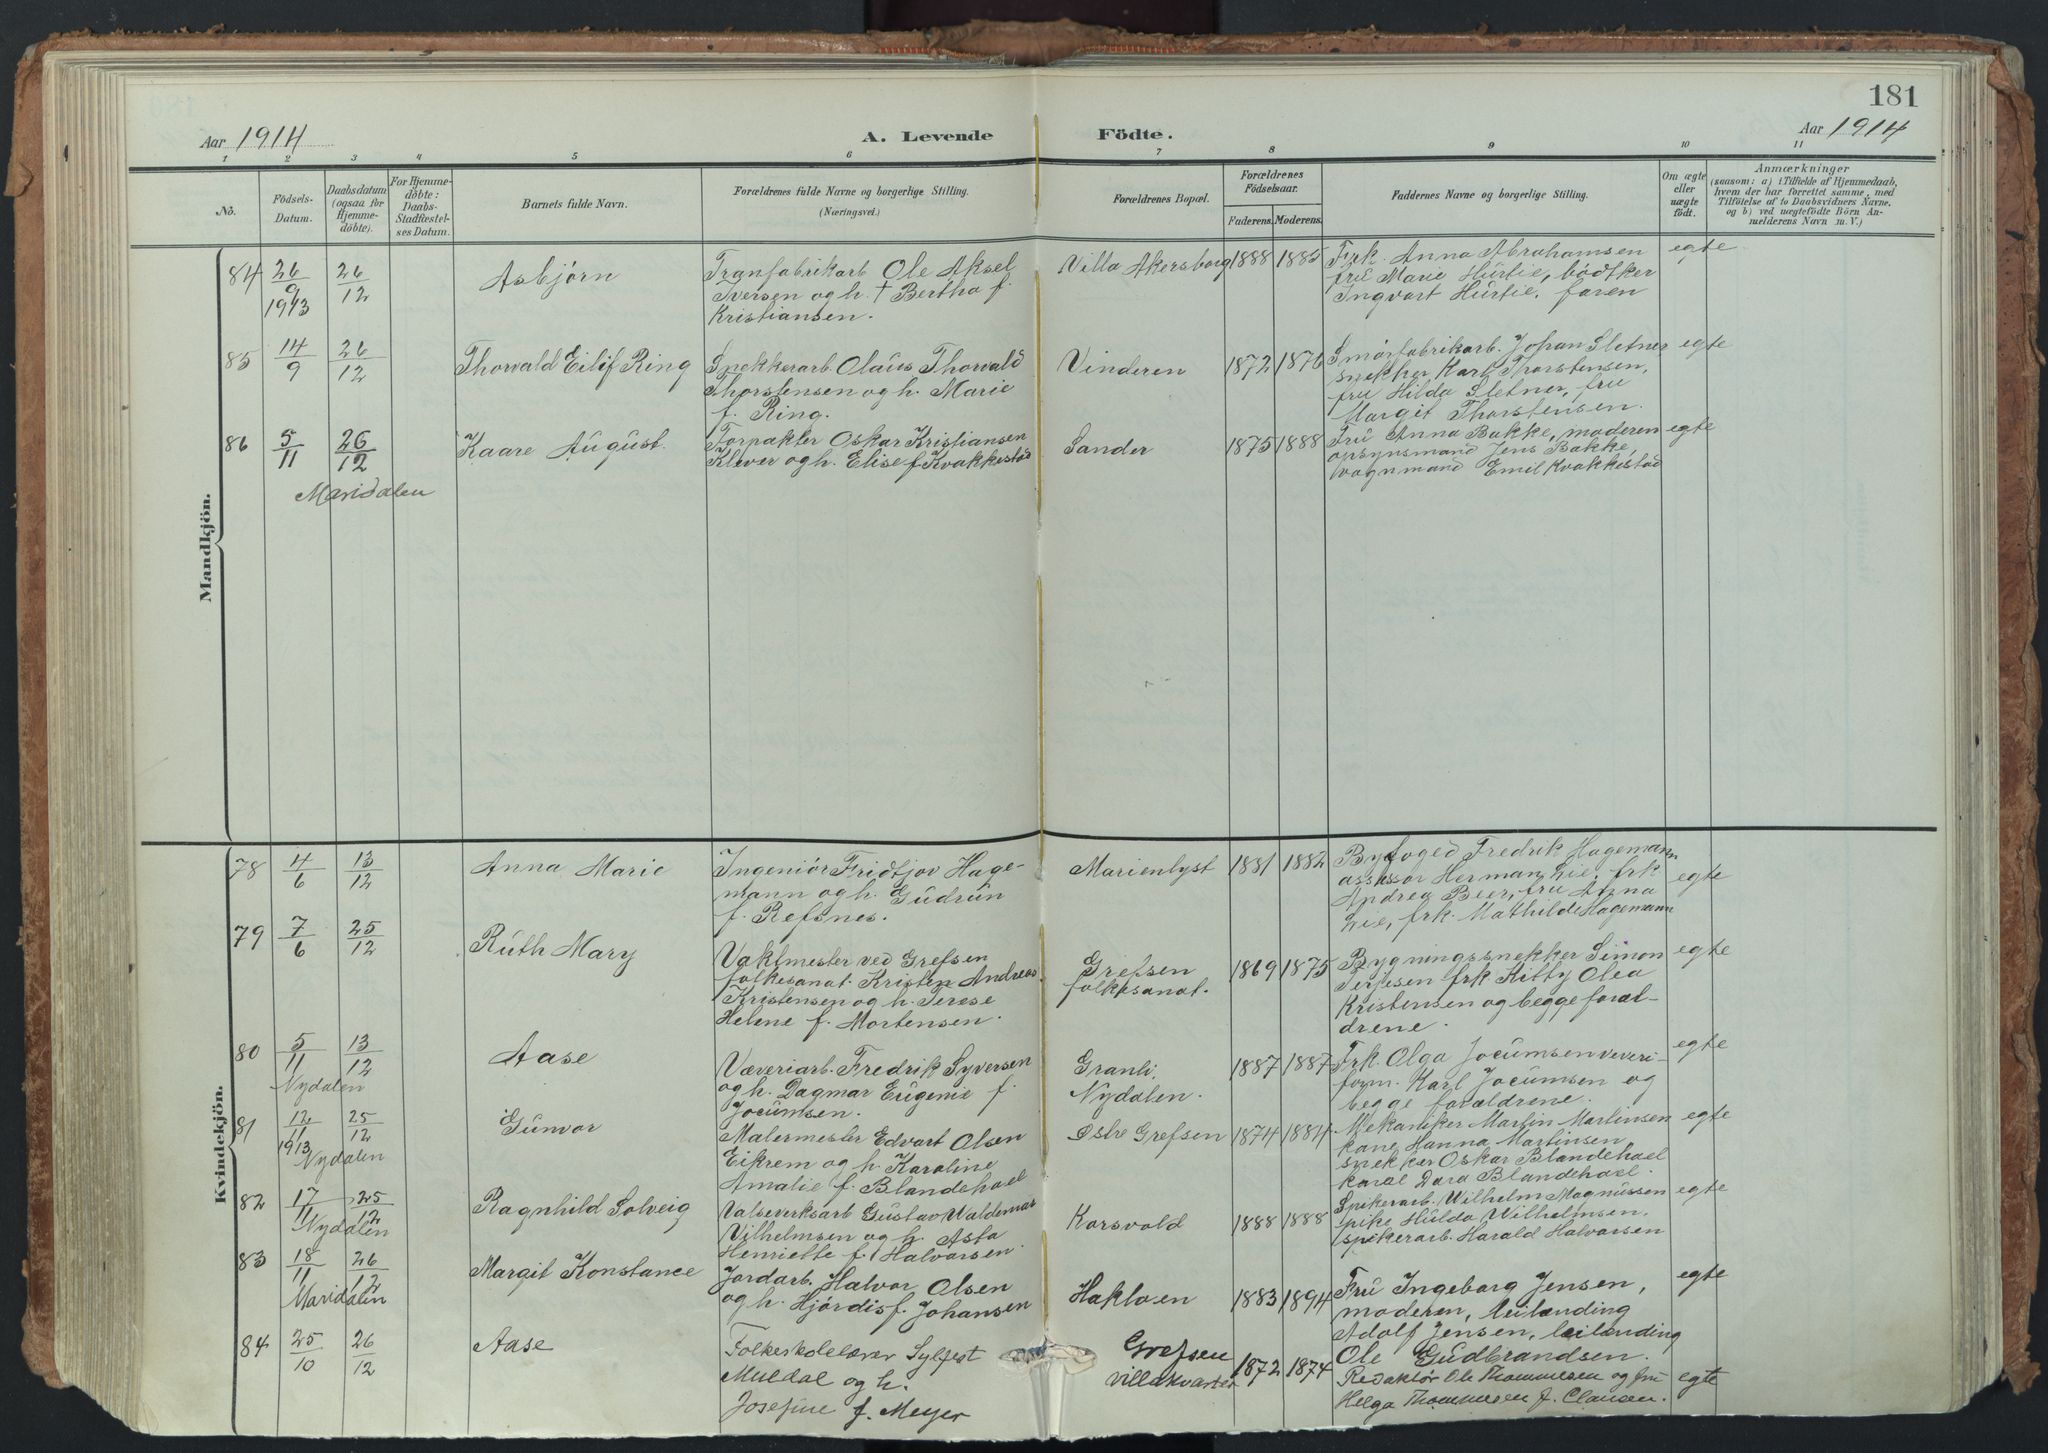 181
Aar 1914
A. Levende Födte.
Aar 1914
1 2 3 4 5 6 7 8 9 10 11
No.
Födsels-
Datum.
Daabsdatum
(ogsaa for
Hjemme-
döbte).
For Hjemme-
döbte:
Daabs-
Stadfæstel-
ses Datum.
Barnets fulde Navn.
Forældrenes fulde Navne og borgerlige Stilling.
(Næringsvei.)
Forældrenes Bopæl.
Forældrenes
Födselsaar.
Faderens. Moderens.
Faddernes Navne og borgerlige Stilling.
Om ægte
eller
uægte
födt.
Anmærkninger
(saasom: a) i Tilfælde af Hjemmedaab,
hvem der har forrettet samme, med
Tilföielse af to Daabsvidners Navne,
og b) ved uægtefödte Börn An-
melderens Navn m. V.)
Mandkjön.
84
26
9
1913
26
12
Asbjørn
Tranfabrikarb Ole Aksel
Iversen og h. † Bertha f.
Kristiansen.
Villa Akersborg
1888 1885
Frk. Anna Abrahamsen
fru Marie Hurtie, bødtker
Ingvart Hurtie, faren
egte
85
14
9
26
12
Thorvald Eilif Ring
Snekkerarb. Olaus Thorvald
Thorstensen og h. Marie
f. Ring.
Vinderen
1872 1876
Smørfabrikarb. Johan Sletner
snekker Karl Thorstensen,
fru Hilda Sletner, fru
Margit Thorstensen.
egte
86
5
11
26
12
Maridalen
Kaare August.
Forpakter Oskar Kristiansen
Klever og h. Elise f. Kvakkestad
Sander
1875 1888
Fru Anna Bakke, moderen
opsynsmand Jens Bakke,
vognmand Emil Kvakkestad
egte
Kvindekjön.
78
4
6
13
12
Anna Marie
Ingeniør Fridtjov Hage-
mann og h. Gudrun
f. Refsnes.
Marienlyst
1881 1882
Byfoged Fredrik Hagemann
assessor Herman Lie, frk
Andrea Beer, fru Anna
Lie, frk. Mathilde Hagemann
egte
79
7
6
25
12
Ruth Mary
Vaktmester ved Grefsen
folkesanat. Kristen Andreas
Kristensen og h. Terese
Helene f. Mortensen.
Grefsen
folkesanat.
1869 1875
Bygningssnekker Simon
Terjesen frk Kitty Olea
Kristensen og begge foræl-
drene.
egte
80
5
11
Nydalen
13
12
Aase
Væveriarb. Fredrik Syversen
og h. Dagmar Eugenie f.
Jocumsen.
Granli,
Nydalen.
1887 1887
Frk. Olga Jocumsen veveri-
form. Karl Jocumsen og
begge forældrene.
egte
81
12
11
1913
Nydalen
25
12
Gunvor
Malermester Edvart Olsen
Eikrem og h. Karoline
Amalie f. Blandehoel
Østre Grefsen
1874 1884
Mekaniker Martin Martinsen
kone Hanna Martinsen
snekker Oskar Blandehoel
kone Dora Blandehoel.
egte
82
17
11
Nydalen
25
12
Ragnhild Solveig
Valseverksarb Gustav Waldemar
Vilhelmsen og h. Asta
Henriette f. Halvorsen.
Korsvold
1888 1888
Spikerarb. Wilhelm Magnussen
pike Hulda Wilhelmsen,
spikerarb. Harald Halvorsen
egte
83
18
11
Maridalen
26
12
Margit Konstance
Jordarb. Halvor Olsen
og h. Hjørdis f. Johansen
Hakloen
1883 1894
Fru Ingeborg Jensen,
moderen, leilænding
Adolf Jensen, leilænding
Ole Gudbrandsen.
egte
84
25
10
26
12
Aase
Folkeskolelærer Sylfest
Muldal og h.
Josefine f. Meyer
Grefsen
villakvarter
1872 1874
Redaktør Ole Thommesen og fru
Helga Thommesen f. Clausen.
egte